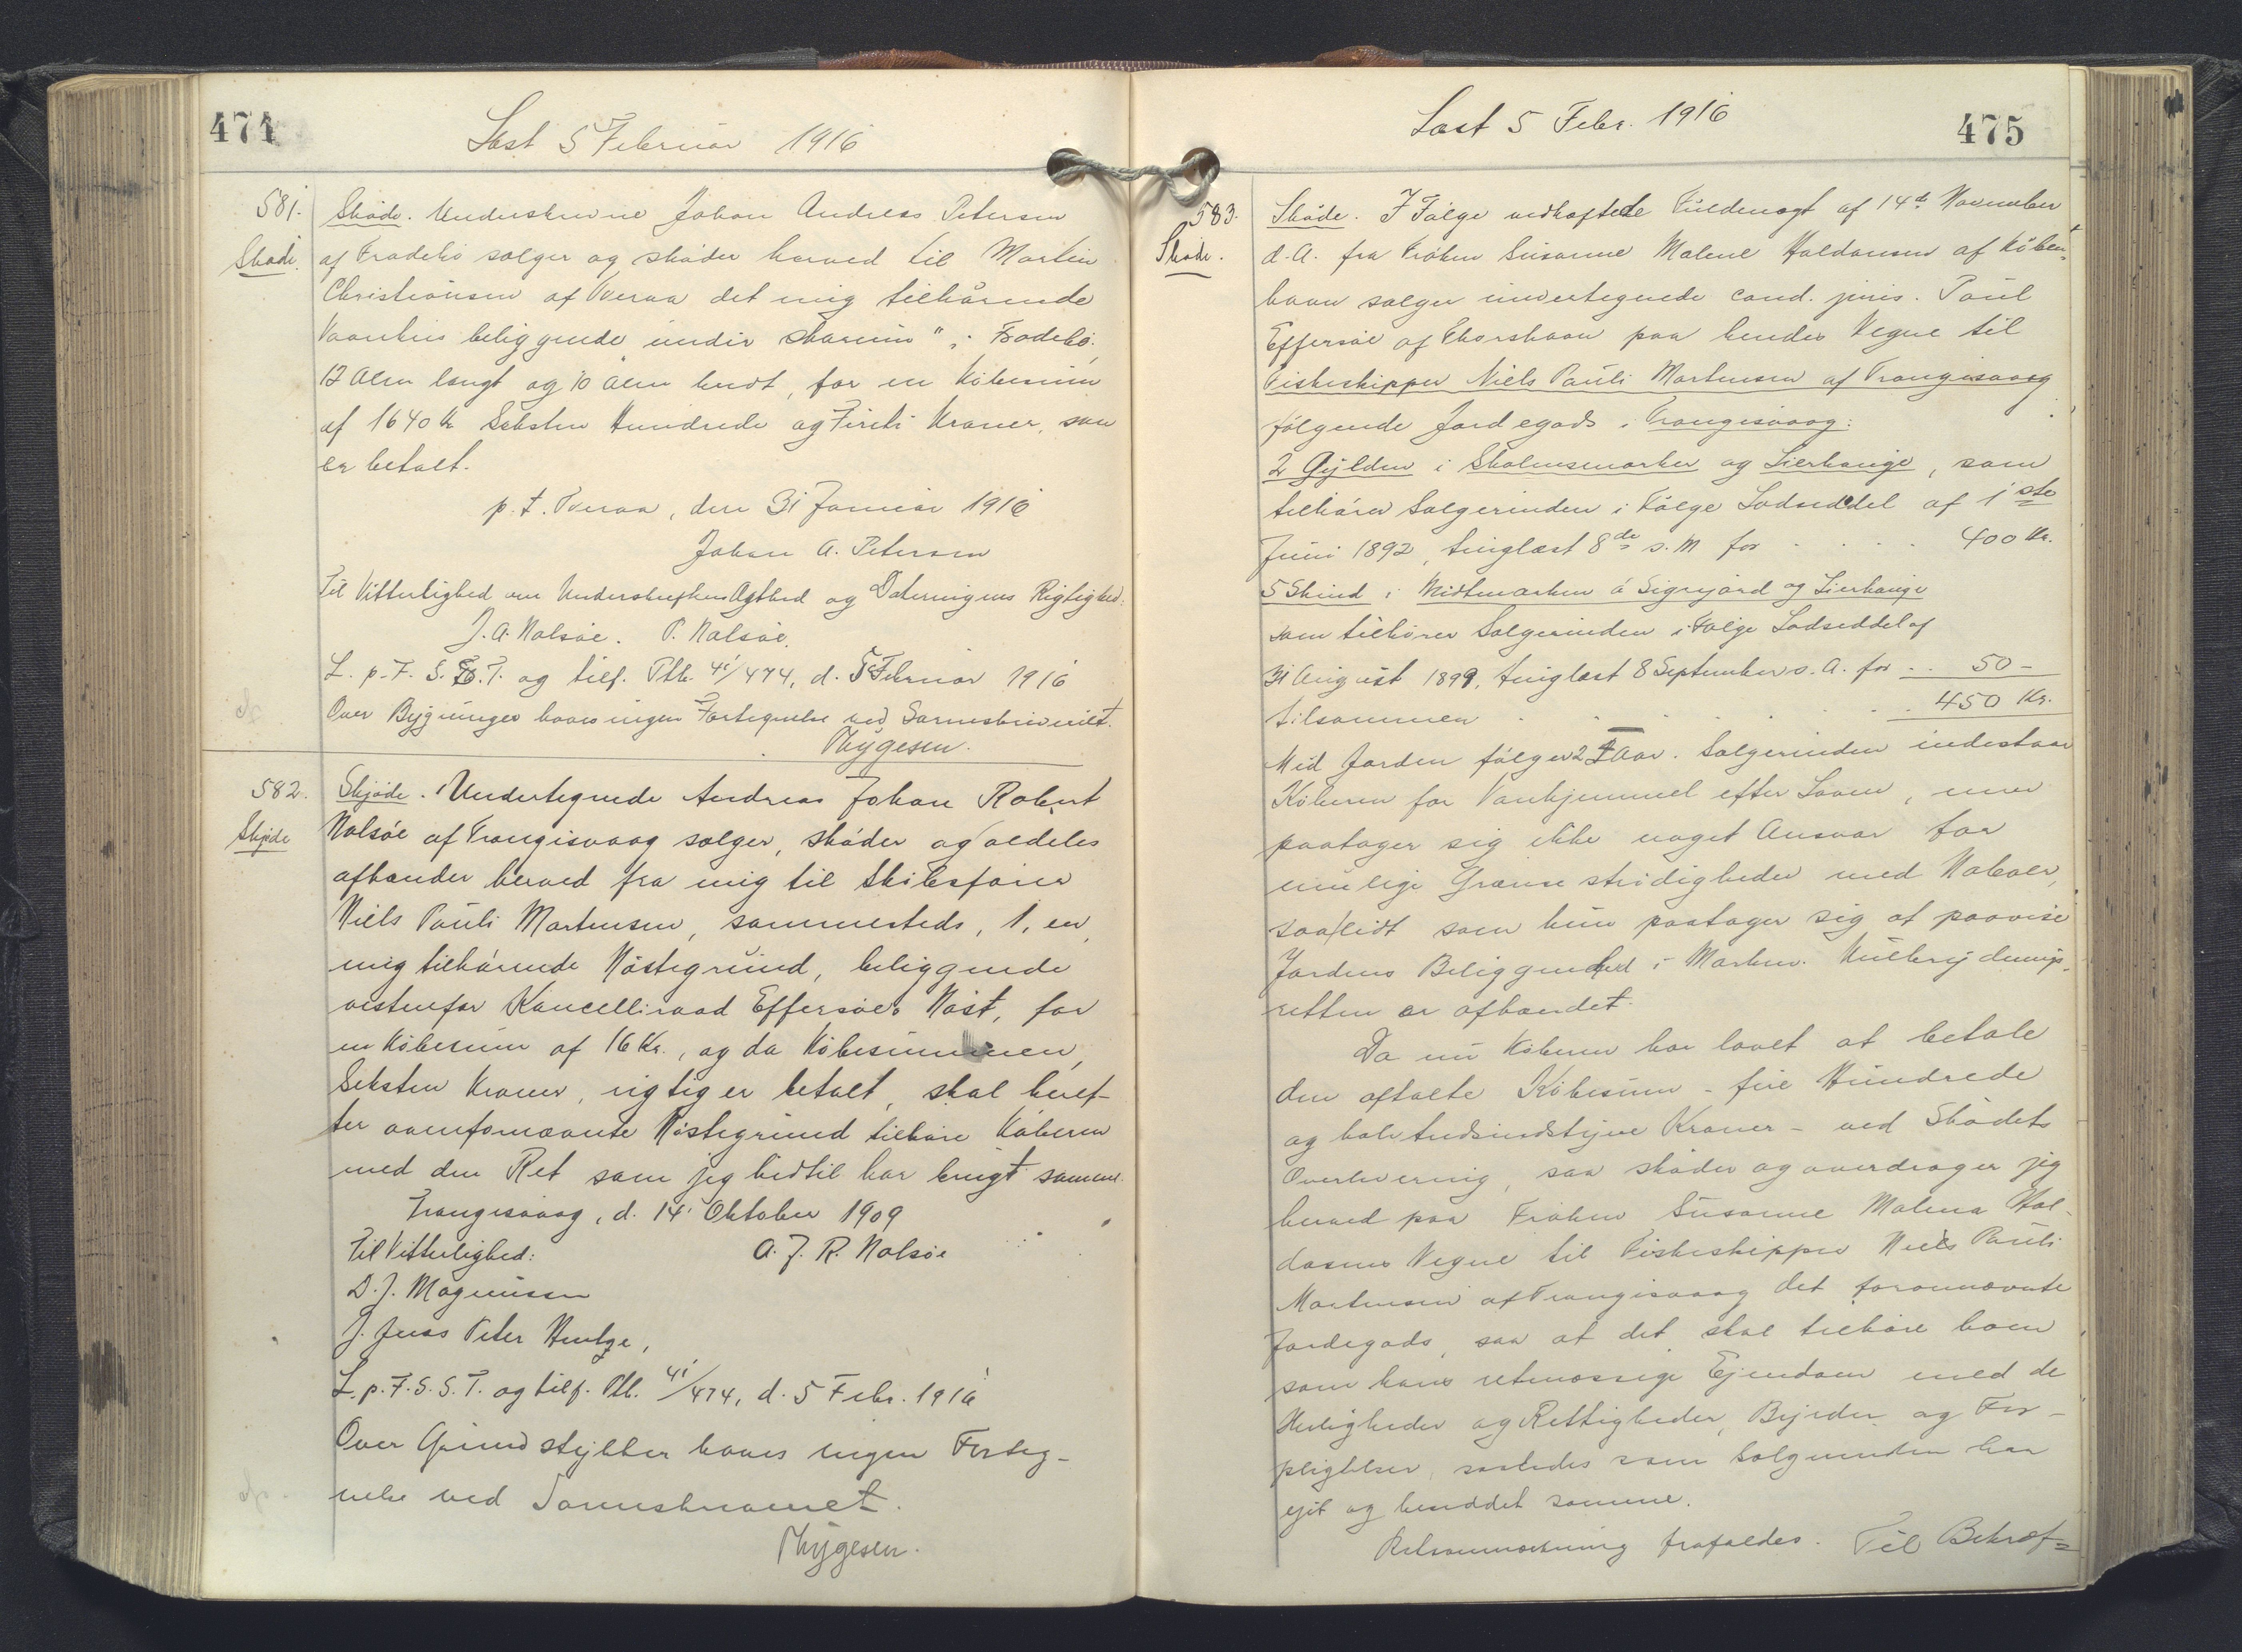 474
Læst 5 Februar 1916
581.
Skøde.
Skøde. Underskrevne Johan Andreas Petersen
af Frodebø sælger og skøder herved til Martin
Christiansen af Tveraa det mig tilhørende
Vaanhus beliggende under " i Frodebø,
12 Alen langt og 10 Alen bredt, for en Købesum
af 1640 Kr Seksten Hundrede og Firti Kroner, som
er betalt.
p.t. Tveraa, den 31 Januar 1916
Johan A. Petersen
Til Vitterlighed om Underskriftens Ægthed og Dateringens Rigtighed:
J. A. Nolsøe. P. Nolsøe.
L. p. F. S. S. T. og tilf. Ptb. 41/474, d. 5 Februar 1916
Over Bygninger haves ingen Fortegnelse ved Sorenskriveriet.
Thygesen.
582.
Skjøde
Skjøde. Undertegnede Andreas Johan Robert
Nolsøe af Trangisvaag sælger, skøder og aldeles
afhænder herved fra mig til Skibsfører
Niels Pauli Mortensen, sammesteds, 1, en
mig tilhørende Nøstegrund, beliggende
vestenfor Kancelliraad Effersøes Nøst, for
en Købesum af 16 Kr., og da Købesummen,
Seksten Kroner, rigtig er betalt, skal heref-
ter ovenfornævnte Nøstegrund tilhøre Køberen
med den Ret som jeg hidtil har brugt samme.
Trangisvaag, d. 14 Oktober 1909
Til Vitterlighed: A. J. R. Nolsøe
D. J. Magnussen
J. Jens Peter Hentze,
L. p. F. S. S. T. og tilf. Ptb. 41/474, d. 5 Febr. 1916
Over Grundstykker haves ingen Forteg-
nelse ved Sorenskriveriet.
Thygesen.
475
Læst 5 Febr. 1916
583.
Skøde.
Skøde. I Følge vedhæftede Fuldmagt af 14de November
d. A. fra Frøken Susanne Malene Haldansen af Køben-
havn sælger undertegnede cand. juris. Poul
Effersøe af Thorshavn paa hendes Vegne til
Fiskeskipper Niels Pauli Mortensen af Trangisvaag
følgende Jordegods i Trangisvaag:
2 Gylden i Skolensmarken og Lierhauge, som
tilhører Sælgerinden i Følge Lodseddel af 1ste
Juni 1892, tinglæst 8de s. M for . . . . 400 Kr.
5 Skind i Midtmarken á Sigrsjørd og Lierhauge
som tilhører Sælgerinden i Følge Lodseddel af
31 August 1899, tinglæst 8 September s. A. for . . 50 –
tilsammen . . . . . . 450 Kr.
Med Jorden følger 2 Faar. Sælgerinden indestaar
Køberen for Vanhjemmel efter Loven, men
paatager sig ikke noget Ansvar for
mulige Grænsestridigheder med Naboer,
saalidt som hun paatager sig at paavise
Jordens Beliggenhed i Marken. Nulbrydnings-
retten er afhændet.
Da nu Køberen har lovet at betale
den aftalte Købesum – fire Hundrede
og halvtredsindstyve Kroner – ved Skødets
Overlevering, saa skøder og overdrager jeg
herved paa Frøken Susanne Malene Hal-
dansens Vegne til Fiskeskipper Niels Pauli
Mortensen af Trangisvaag det forannævnte
Jordegods, saa at det skal tilhøre ham
som hans retmæssige Ejendom med de
Herligheder og Rettigheder, Byrder og For-
pligtelser, saaledes som Sælgerinden har
ejet og besiddet samme.
frafaldes. Til Bekræf-